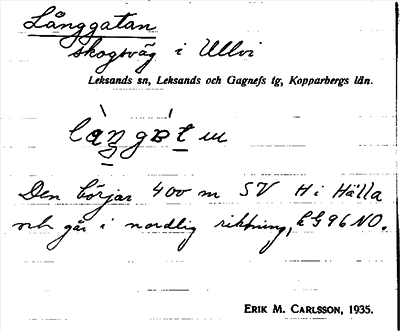 Långgatan
skogsväg i Ullvi
Leksands sn, Leksands och Gagnefs tg, Kopparbergs län.
Den börjar 400 m SV H i Hälla
och går i nordlig riktning, EG96NO.
ERIK M. CARLSSON, 1935.